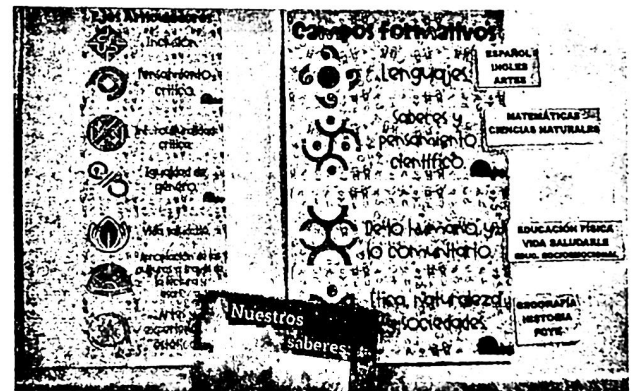 Ejes Articuladores
Inclusión
Pensamiento
crítico.
Interculturalidad
crítica.
Igualdad de
género.
Vida saludable
Apropiación de las
culturas a través de
la lectura y
Artes y
Campos formativos
Lenguajes
ESPAÑOL
INGLES
ARTES
Saberes y
pensamiento
científico.
MATEMÁTICAS
CIENCIAS NATURALES
De lo humano y
lo comunitario.
EDUCACIÓN FÍSICA
VIDA SALUDABLE
EDUC. SOCIOEMOCIONAL
Ética, naturaleza
y sociedades.
GEOGRAFÍA
HISTORIA
FCYE
Nuestros
saberes